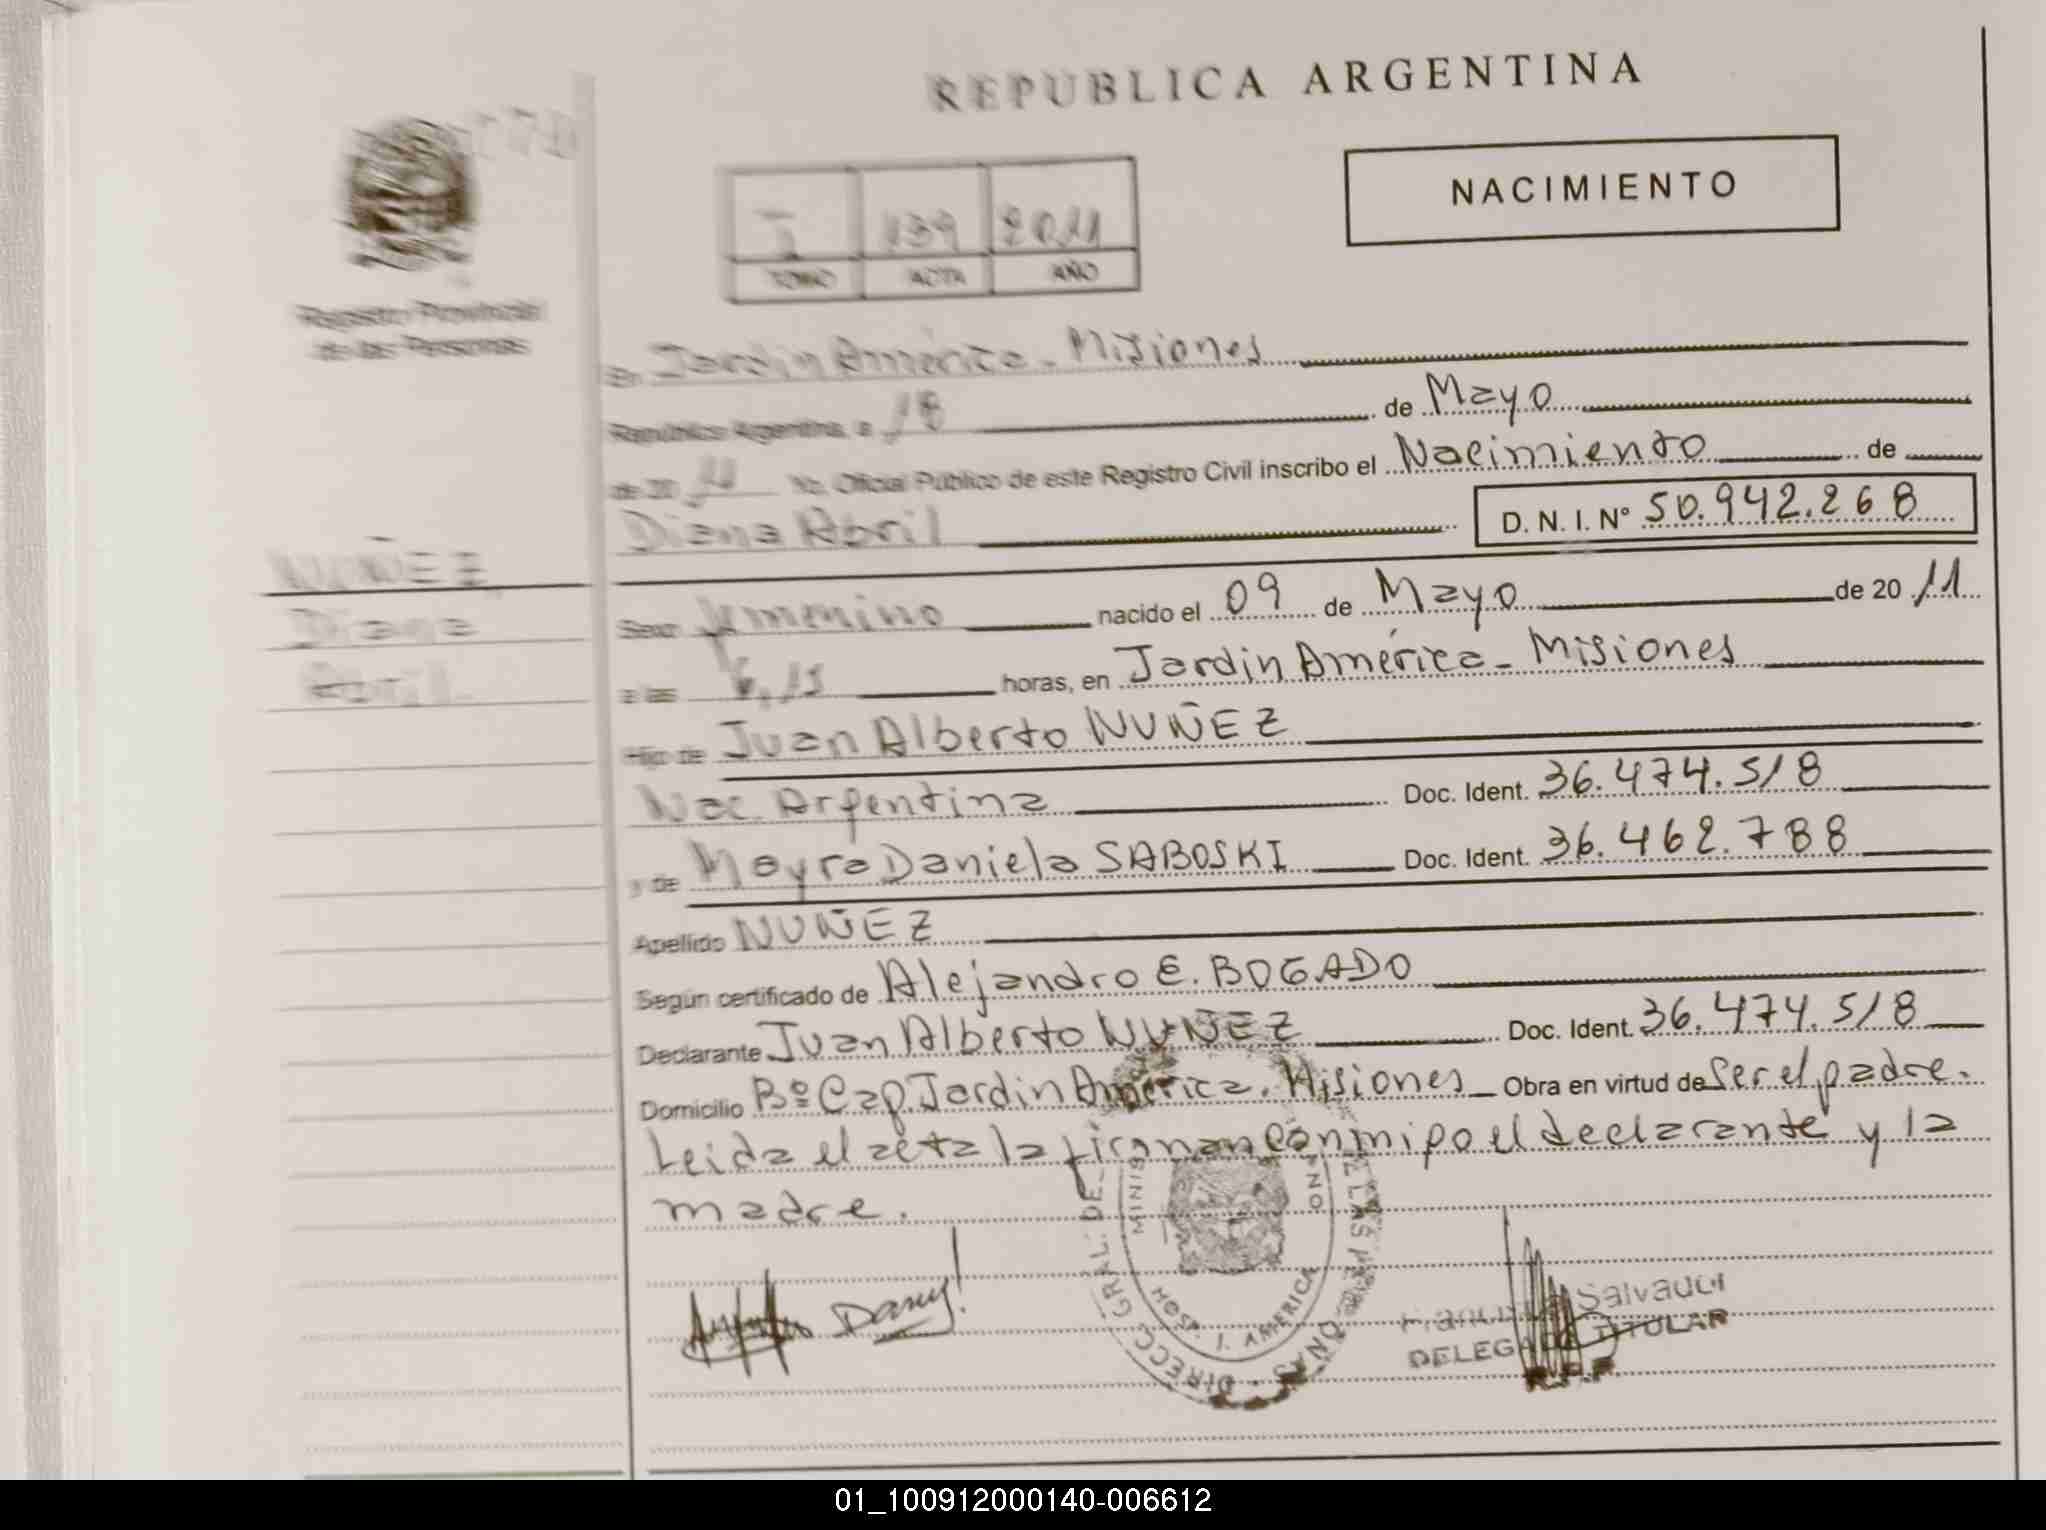 REPUBLICA ARGENTINA
NACIMIENTO
I 139 2011
TOMO ACTA AÑO
Registro Provincial
de las Personas
En Jardin América - Misiones
República Argentina, a 18 de Mayo
de 20 11 Yo, Oficial Público de este Registro Civil inscribo el Nacimiento de
Diana Abril D. N. I. Nº 50.942.268
NUÑEZ
Diana
Abril
Sexo femenino nacido el 09 de Mayo de 20 11
a las 6,15 horas, en Jardin América - Misiones
Hijo de Juan Alberto NUÑEZ
Nac. Argentina Doc. Ident. 36.474.518
y de Mayra Daniela SABOSKI Doc. Ident. 36.462.788
Apellido NUÑEZ
Según certificado de Alejandro E. BOGADO
Declarante Juan Alberto NUÑEZ Doc. Ident. 36.474.518
Domicilio Bº Cap. Jardin América. Misiones Obra en virtud de Ser el padre.
Leida el acta la firman con mi po el declarante y la
madre.
Dany!
DIRECC. GRAL. DE LAS PERSONAS
J. AMERICA
Salvador
DELEGADO TITULAR
R.P.P.
01_100912000140-006612